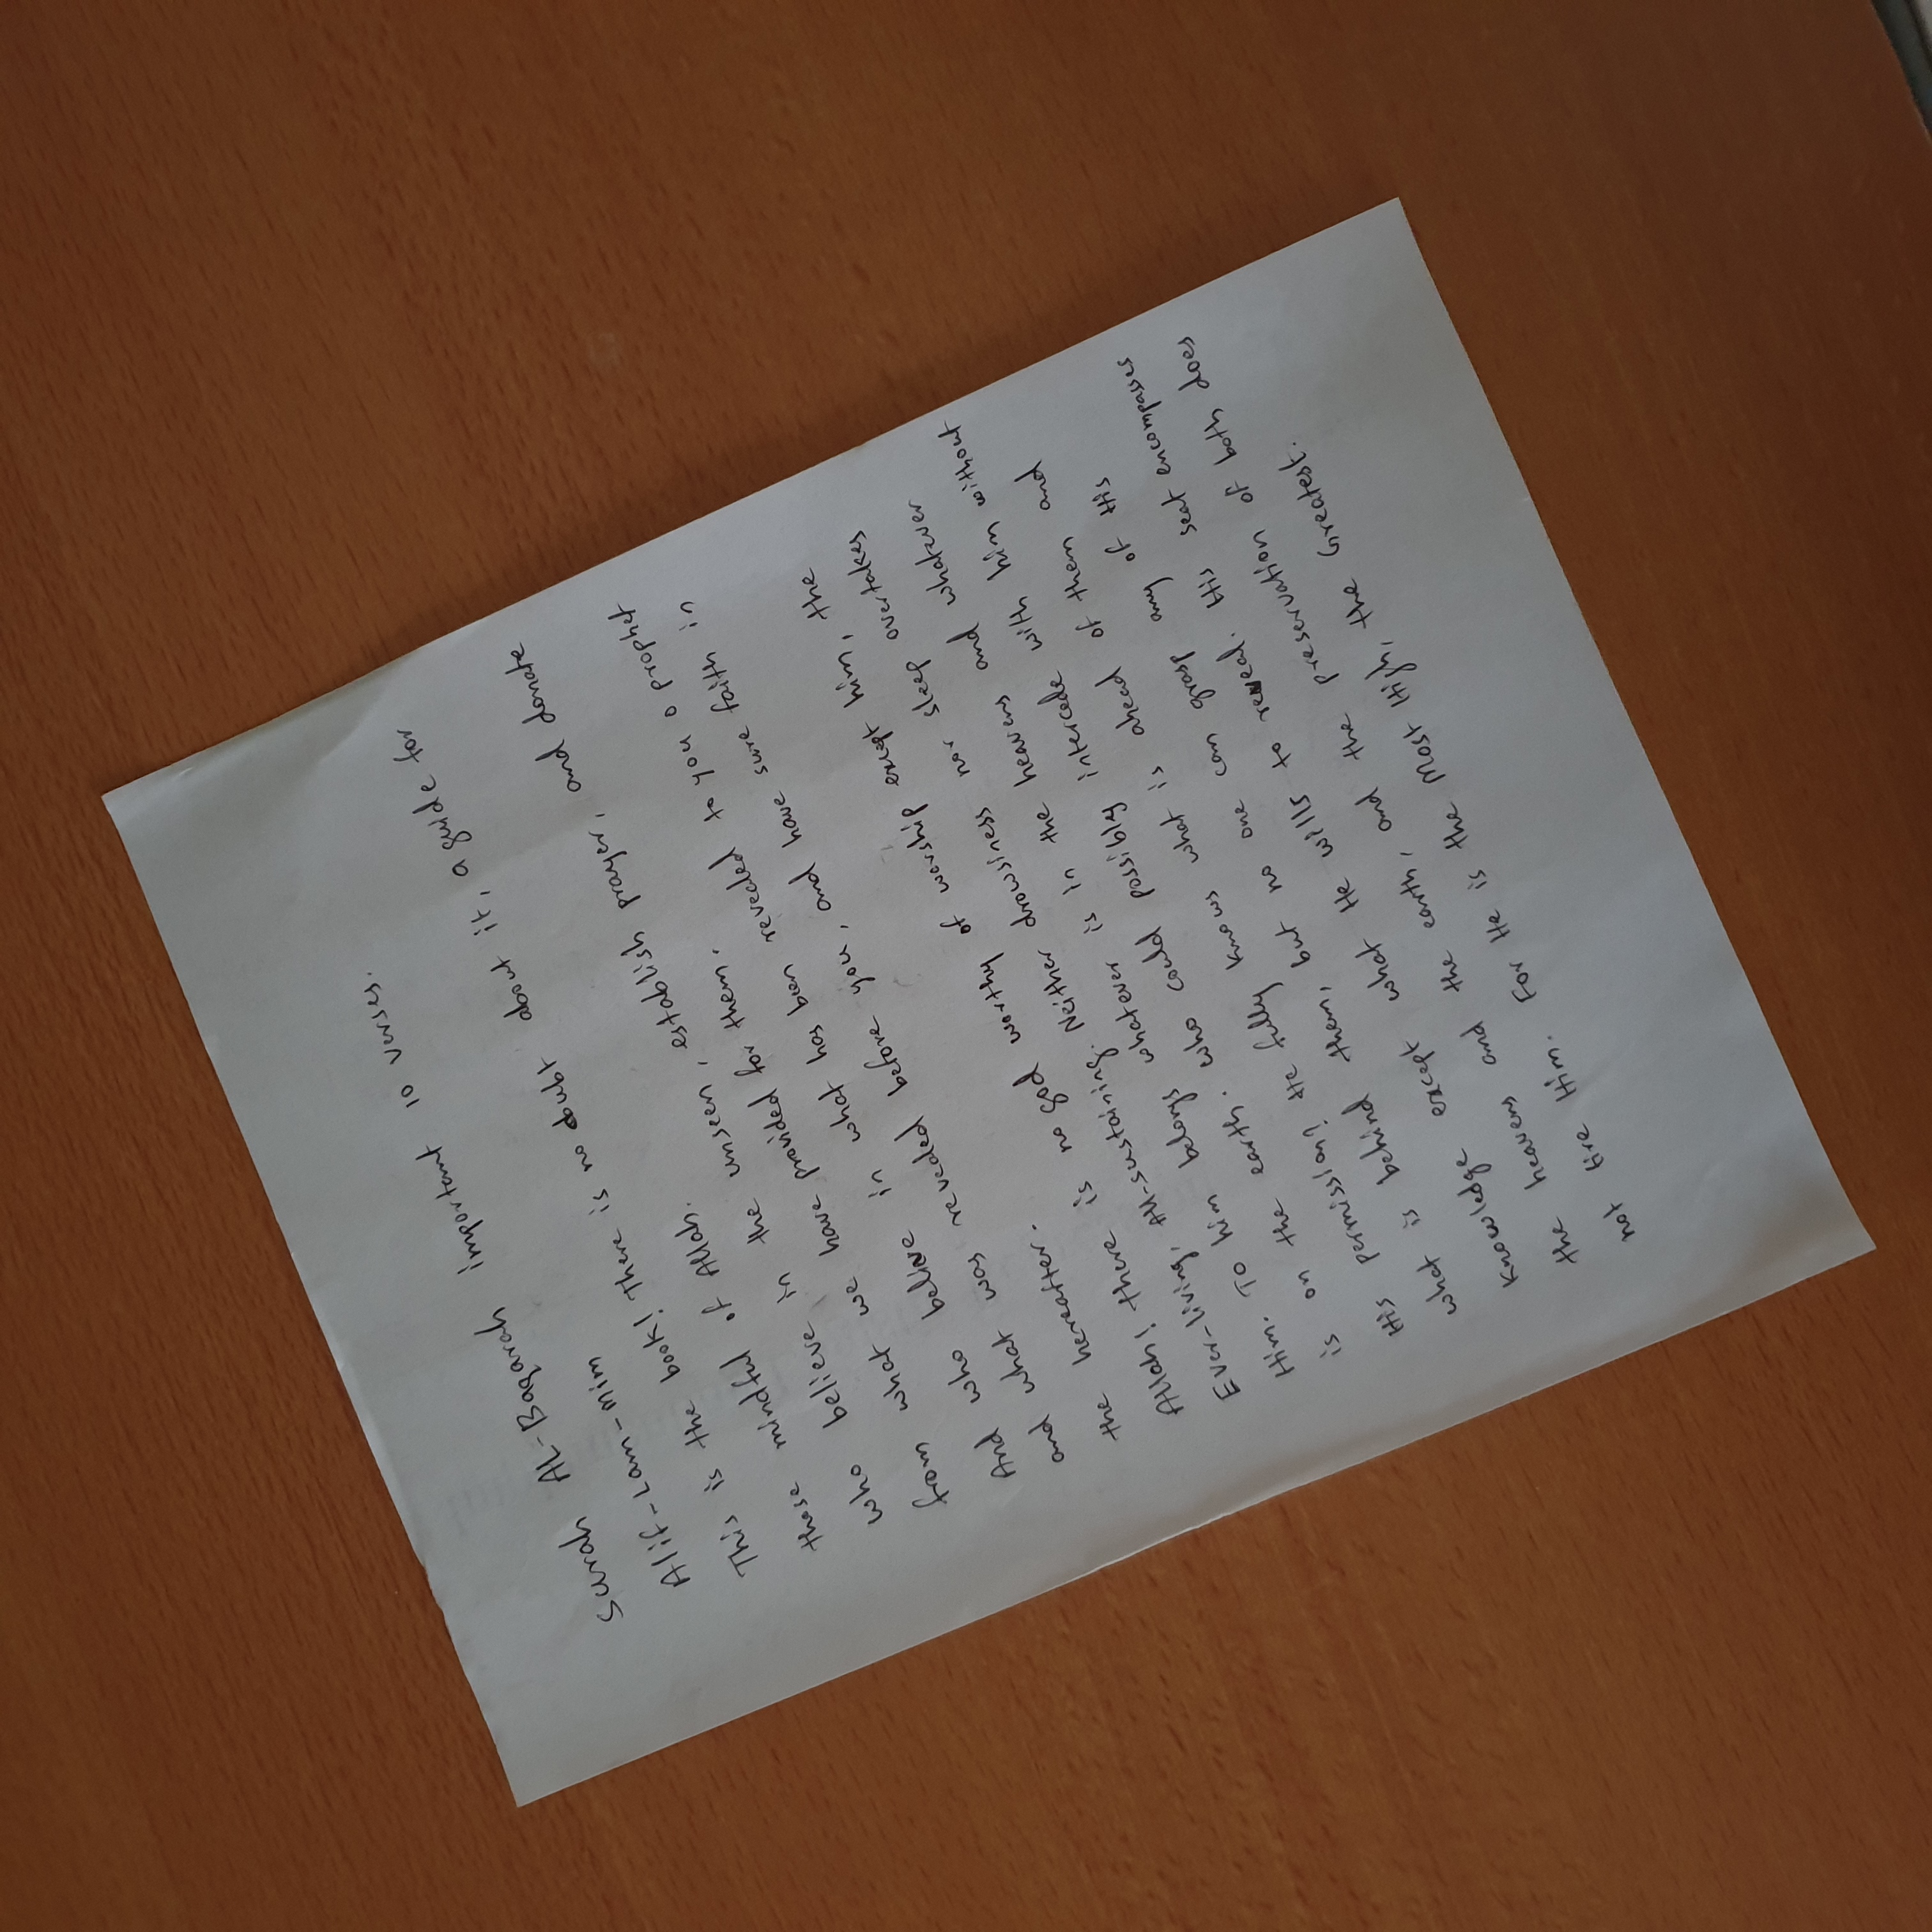 Surah AL-Baqarah important 10 verses.
Alif-Lam-Mim
This is the book! There is no doubt about it, a guide for
those mindful of Allah.
who believe in the unseen, establish prayer, and donate
from what we have provided for them.
And who believe in what has been revealed to you o prophet
and what was revealed before you, and have sure faith in
the hereafter.
Allah! there is no god worthy of worship except him, the
Ever-living, All-sustaining. Neither drowsiness nor sleep overtakes
Him. To him belongs whatever is in the heavens and whatever
is on the earth. who could possibly intercede with him without
His permission? He fully knows what is ahead of them and
what is behind them, but no one can grasp any of His
knowledge except what He wills to reveal. His seat encompasses
the heavens and the earth, and the preservation of both does
not tire Him. For He is the Most High, the Greatest.